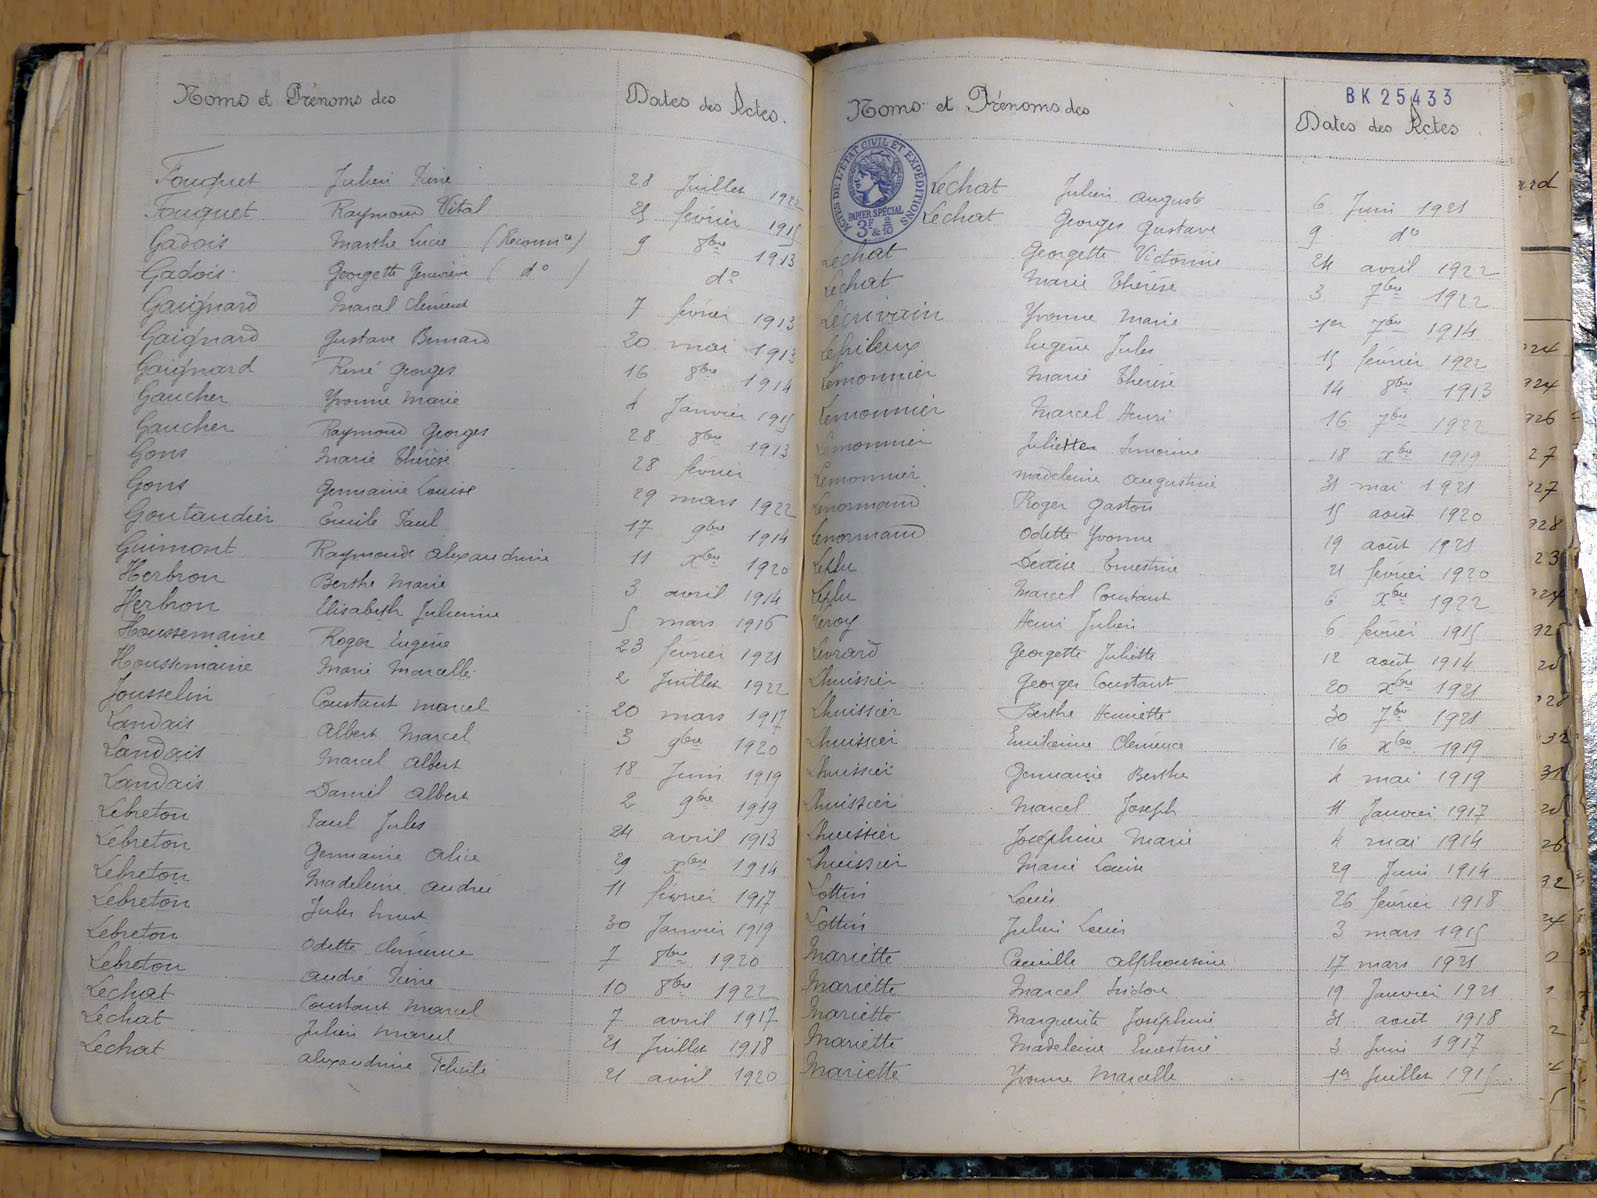 Noms et Prénoms des Dates des Actes.
Fouquet Julien Pierre 28 Juillet 1922
Fouquet Raymond Vital 21 février 1915
Gadois Marthe Lucie (Reconn ce) 9 8bre 1913
Gadois Georgette Geneviève ( do ) do
Gaignard Marcel Clément 7 février 1913
Gaignard Gustave Bernard 20 mai 1913
Gaignard René Georges 16 8bre 1914
Gaucher Yvonne Marie 4 Janvier 1915
Gaucher Raymond Georges 28 8bre 1913
Gons Marie Thérèse 28 février
Gons Germaine Louise 29 mars 1922
Goutaudier Émile Paul 17 9bre 1914
Guimont Raymonde alexandrine 11 Xbre 1920
Herbron Berthe Marie 3 avril 1914
Herbron Elisabeth Julienne 5 mars 1916
Houssemaine Roger Eugène 23 février 1921
Houssemaine Marie Marcelle 2 Juillet 1922
Jousselin Constant marcel 20 mars 1917
Landais Albert Marcel 3 9bre 1920
Landais Marcel Albert 18 Juin 1919
Landais Daniel Albert 2 9bre 1919
Lebreton Paul Jules 24 avril 1913
Lebreton Germaine Alice 29 Xbre 1914
Lebreton Madeleine andrée 11 février 1917
Lebreton Jules Ernest 30 Janvier 1919
Lebreton Odette Clémence 7 8bre 1920
Lebreton andré Pierre 10 8bre 1922
Lechat Constant Marcel 7 avril 1917
Lechat Julien Marcel 21 Juillet 1918
Lechat alexandrine Félicité 21 avril 1920
BK 25433
Noms et Prénoms des Dates des Actes
ACTES DE L'ÉTAT CIVIL ET EXPÉDITIONS
PAPIER SPÉCIAL
3F & 2/10
Lechat Julien auguste 6 Juin 1921
Lechat Georges Gustave 9 do
Lechat Georgette Victorine 24 avril 1922
Lechat Marie Thérèse 3 7bre 1922
Lécrivain Yvonne Marie 1er 7bre 1914
Lepileux Eugène Jules 15 février 1922
Lemonnier Marie Thérèse 14 8bre 1913
Lemonnier Marcel Henri 16 7bre 1922
Lemonnier Juliette Simonne 18 Xbre 1919
Lemonnier madeleine augustine 31 mai 1921
Lenormand Roger Gaston 15 août 1920
Lenormand Odette Yvonne 19 août 1921
Leplu Denise Ernestine 21 février 1920
Leplu Marcel Constant 6 Xbre 1922
Leroy Henri Julien 6 février 1915
Levrard Georgette Juliette 12 août 1914
Lhuissier Georges Constant 20 Xbre 1921
Lhuissier Berthe Henriette 30 7bre 1921
Lhuissier Emilienne Clémence 16 Xbre 1919
Lhuissier Germaine Berthe 4 mai 1919
Lhuissier Marcel Joseph 11 Janvier 1917
Lhuissier Joséphine Marie 4 mai 1914
Lhuissier Marie Louise 29 Juin 1914
Lottin Louis 26 février 1918
Lottin Julien Louis 3 mars 1915
Mariette Camille alphonsine 17 mars 1921
Mariette Marcel Isidore 19 Janvier 1921
Mariette Marguerite Joséphine 31 août 1918
Mariette Madeleine Ernestine 3 Juin 1917
Mariette Yvonne Marcelle 1er Juillet 1915